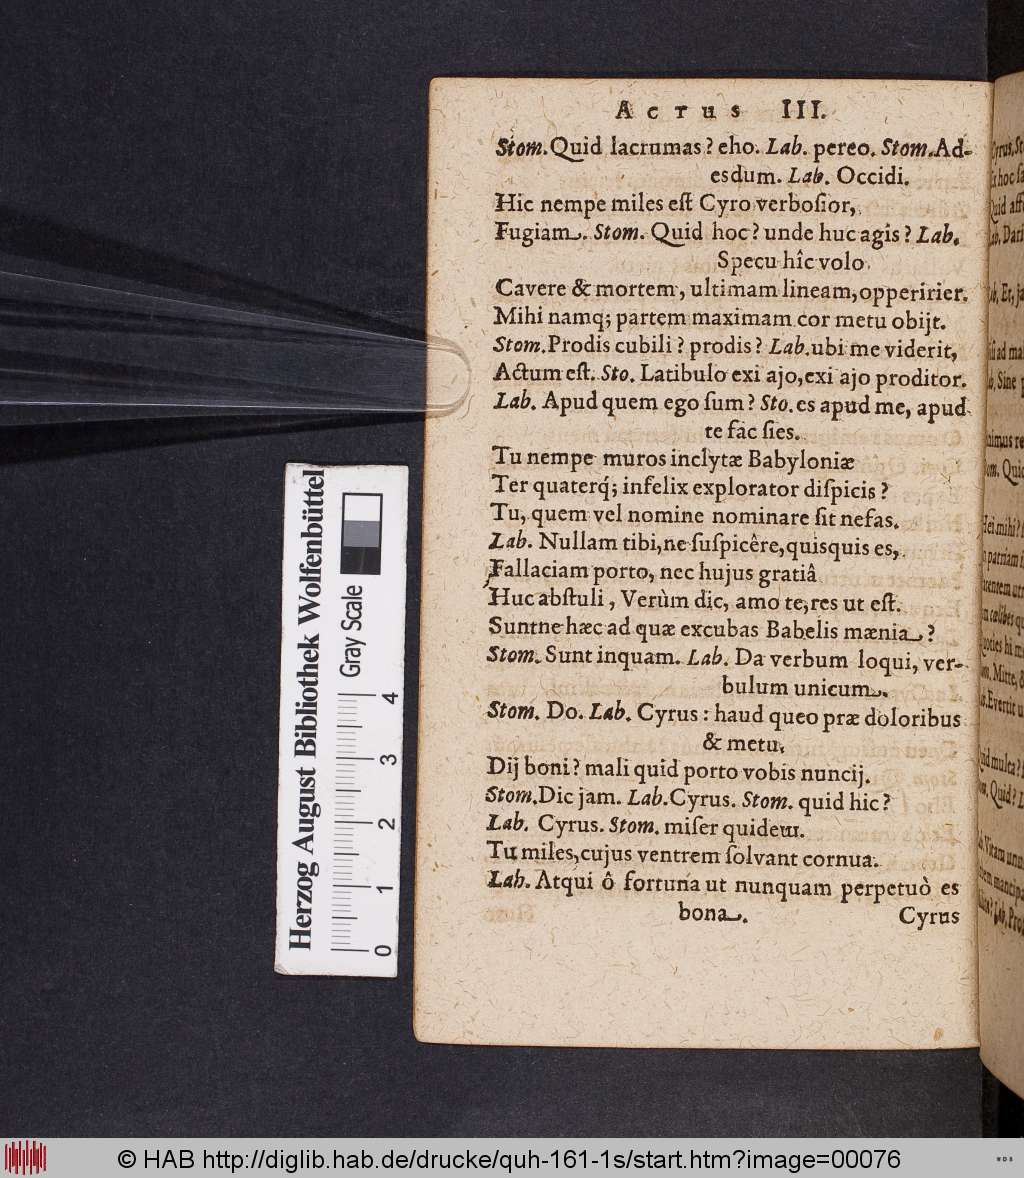 Actus III.
Stom. Quid lacrumas? eho. Lab. pereo. Stom. Ad-
esdum. Lab. Occidi.
Hic nempe miles eſt Cyro verboſior,
Fugiam. Stom. Quid hoc? unde huc agîs? Lab.
Specu hîc volo
Cavere & mortem, ultimam lineam, opperirier.
Mihi namq; partem maximam cor metu obijt.
Stom. Prodis cubili? prodis? Lab. ubi me viderit,
Actum eſt. Sto. Latibulo exi ajo, exi ajo proditor.
Lab. Apud quem ego ſum? Sto. es apud me, apud
te fac ſies.
Tu nempe muros inclytæ Babyloniæ
Ter quaterq́; infelix explorator diſpicis?
Tu, quem vel nomine nominare ſit nefas.
Lab. Nullam tibi, ne ſuſpicêre, quisquis es,
Fallaciam porto, nec hujus gratiâ
Huc abſtuli, Verùm dic, amo te, res ut eſt.
Suntne hæc ad quæ excubas Babelis mænia?
Stom. Sunt inquam. Lab. Da verbum loqui, ver-
bulum unicum.
Stom. Do. Lab. Cyrus: haud queo præ doloribus
& metu.
Dij boni? mali quid porto vobis nuncij.
Stom. Dic jam. Lab. Cyrus. Stom. quid hic?
Lab. Cyrus. Stom. miſer quidem.
Tu miles, cujus ventrem ſolvant cornua.
Lab. Atqui ô fortuna ut nunquam perpetuò es
bona. Cyrus
Herzog August Bibliothek Wolfenbüttel
Gray Scale
0 1 2 3 4
© HAB http://diglib.hab.de/drucke/quh-161-1s/start.htm?image=00076